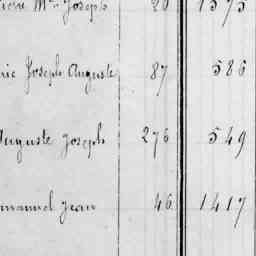 Pierre Mie Joseph 20 1375
rie Joseph Auguste 87 586
Auguste Joseph 276 549
manuel Jean 46 1417